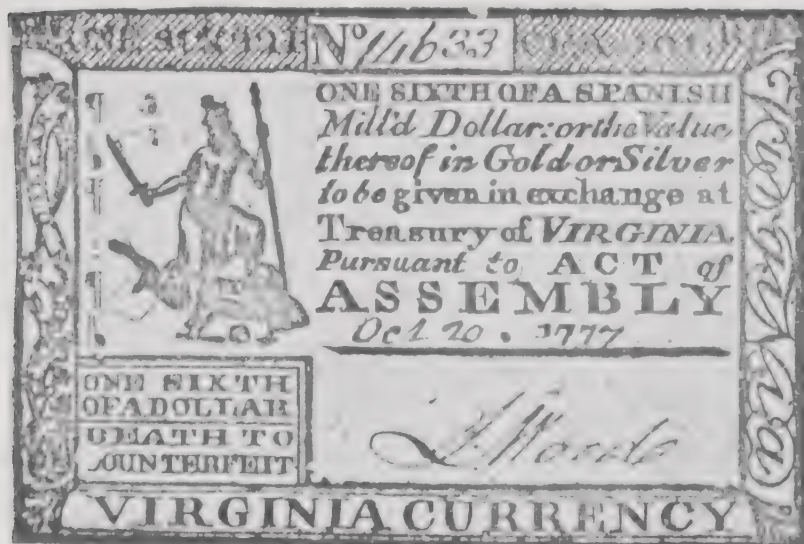 No
ONE SIXTH OF A SPANISH
Mill'd Dollar: or the Value
thereof in Gold or Silver
to be given in exchange at
Treasury of VIRGINIA
Pursuant to ACT of
ASSEMBLY
Oct 20. 1777
ONE SIXTH
OF A DOLLAR
DEATH TO
COUNTERFEIT
Virginia
VIRGINIA CURRENCY